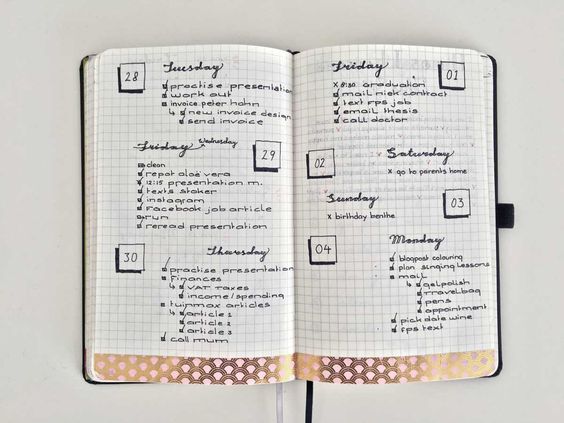 28
Tuesday
practise presentation
work out
invoice peter hahn
↳ new invoice design
send invoice
Friday wednesday
29
clean
repot aloë vera
12:15 presentation m.
texts stoker
instagram
Facebook job article
run
reread presentation
30
Thursday
practise presentation
Finances
↳ VAT Taxes
income/spending
tuinmax articles
↳ article 1
article 2
article 3
call mum
Friday
01
x 8:30 graduation
mail niek contract
text fps job
email thesis
call doctor
02
Saturday
x go to parents home
Sunday
03
x birthday benthe
04
Monday
blogpost colouring
plan singing lessons
mail
↳ gelpolish
travelbag
pens
appointment
pick date wine
fps text